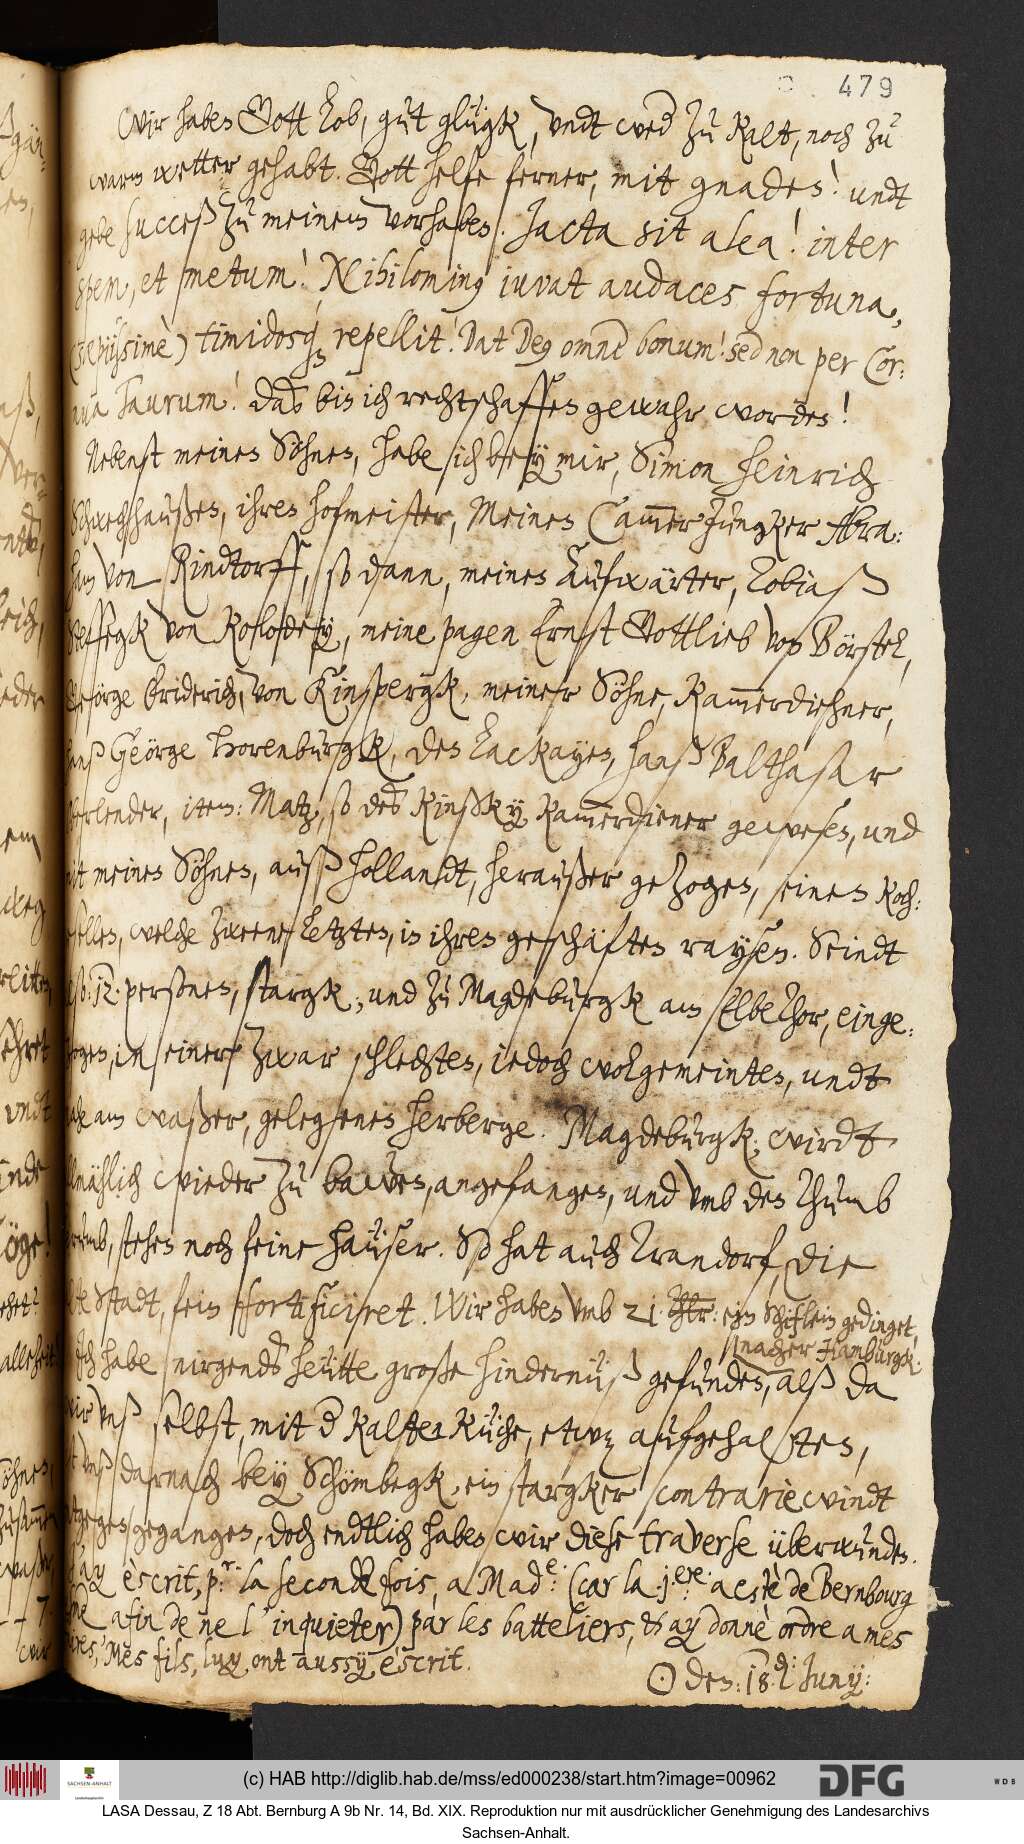 479
Wir haben Gott lob, gut glügk, vndt wed zu kalt, noch zu
warm wetter gehabt. Gott helfe ferner, mit gnaden! undt
gebe succeß zu meinem vorhaben. Jacta sit alea! inter
spem, et metum! Nihilominꝰ iuvat audaces fortuna,
(sæpissimè) timidosq́ꝫ repellit! Dat Deꝰ omne bonum! sed non per Cor:
nua Taurum! Daß bin ich rechtschaffen gewahr worden!
Nebenst meinen Söhnen, habe ich bey mir, Simon Heinrich
Schwechhaußen, ihren hofmeister, Meinen Cammer Jungker Abra:
ham von Rindtorff, so dann, meinen Aufwärter, Tobiaß
Steffegk von Kolodey, meine pagen Ernst Gottlieb von Börstel,
Geörge Friderich, von Kinspergk, meiner Söhne, Kammerdiehner,
Hanß Geörge Horenburgk, den Lackayen, Hanß Balthasar
Oberlender, item: Matz, so deß Kinßky Kammerdiener gewesen, und
mit meinen Söhnen, auß Hollandt, heraußer gezogen, einen Koch,
welche zweene letzten, in ihren geschäften raysen. Seindt
12. perßonen, stargk, und zu Magdeburgk am Elbethor, einge:
zogen, in einer zwar schlechten, iedoch wolgemeinten, undt
nahe am waßer, gelegenen herberge. Magdeburgk, wirdt
allmählich wieder zu bawen, angefangen, und vmb den Thumb
herumb, stehen noch feine haüser. So hat auch Trandorf, die
alte Stadt, fein fortificiret. Wir haben vmb 21 Thlr: ein Schiflein gedinget,
nacher Hamburgk.
Ich habe nirgends heütte große hindernüß gefunden, alß da
wir vnß selbst, mit d kalten Küche, etwaz aufgehalten,
ist vnß darnach bey Schömbegk, ein stargker contrarie windt
entgegen gegangen, doch endtlich haben wir diese traverse überwunden.
J'ay èscrit, p.r la seconde fois, a Mad.e (car la 1.ere a estè de Bernbourg
afin de ne l'inquieter) par les batteliers, & ay donnè ordre a mes
Mes fils, luy ont aussy èscrit.
☉ den: 18. Juny:
(c) HAB http://diglib.hab.de/mss/ed000238/start.htm?image=00962
SACHSEN-ANHALT
DFG
WDB
LASA Dessau, Z 18 Abt. Bernburg A 9b Nr. 14, Bd. XIX. Reproduktion nur mit ausdrücklicher Genehmigung des Landesarchivs
Sachsen-Anhalt.